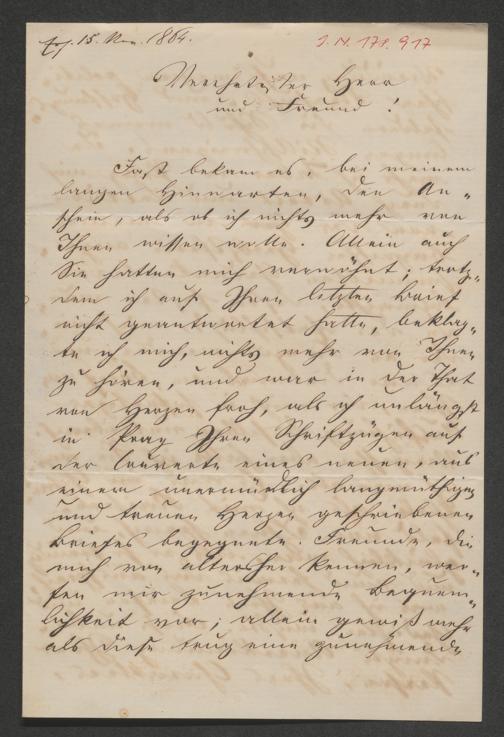 15. Nov. 1864.
I. N. 178.917
Verehrtester Herr
und Freund!
Fast bekam es, bei meinem
langen Hinwarten, den An-
schein, als ob ich nichts mehr von
Ihnen wissen wolle. Allein auch
Sie hatten mich verwöhnt; trotz-
dem ich auf Ihren letzten Brief
nicht geantwortet hatte, beklag-
te ich mich, nichts mehr von Ihnen
zu hören, und war in der That
von Herzen froh, als ich unlängst
in Prag Ihren Schriftzügen auf
der Couverte eines neuen, aus
einem unermüdlich langmüthigen
und treuen Herzen geschriebenen
Briefes begegnete. Freunde, die
mich von altersher kennen, wer-
fen mir zunehmende Bequem-
lichkeit vor; allein gewiß mehr
als diese trug eine zunehmende